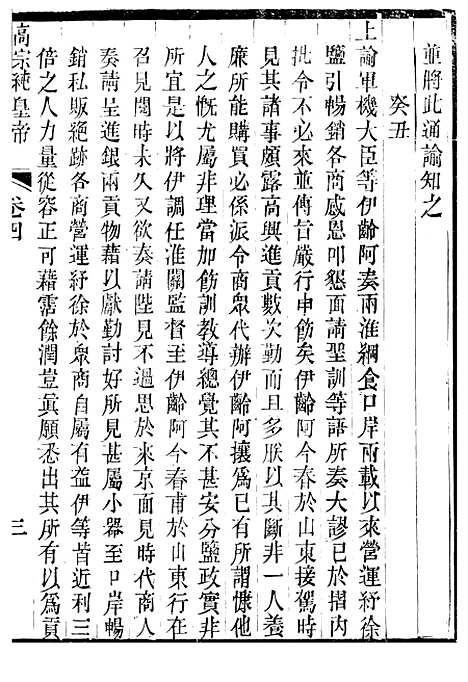 並將此通諭知之
癸丑
上諭軍機大臣等伊齡阿奏兩淮綱食口岸兩載以來營運紓徐
鹽引暢銷各商感恩叩懇面請聖訓等語所奏大謬已於摺內
批令不必來並傳旨嚴行申飭矣伊齡阿今春於山東接駕時
見其諸事頗露高興進貢數次勤而且多朕以其斷非一人養
廉所能購買必係派令商眾代辦伊齡阿攘為己有所謂慷他
人之慨尤屬非理當加飭訓教導總覺其不甚安分鹽政實非
所宜是以將伊調任淮關監督至伊齡阿今春甫於山東行在
召見閱時未久又欲奏請陛見不過思於來京面見時代商人
奏請呈進銀兩貢物藉以獻勤討好所見甚屬小器至口岸暢
銷私販絕跡各商營運紓徐於眾商自屬有益伊等皆近利三
倍之人力量從容正可藉霑餘潤豈真願悉出其所有以為貢
高宗純皇帝
卷四
三